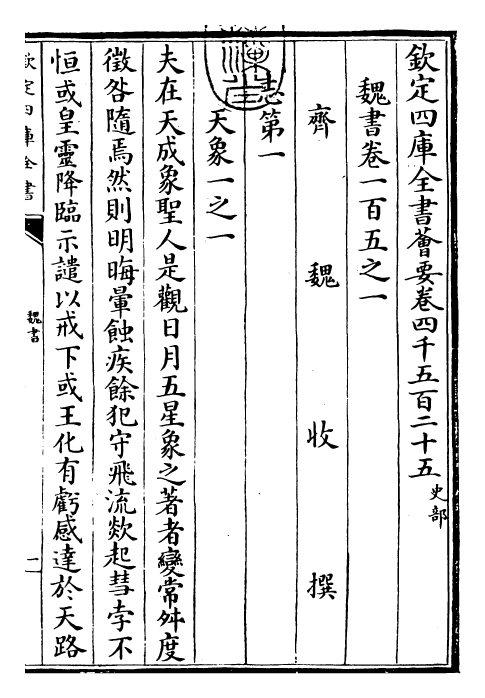 欽定四庫全書薈要卷四千五百二十五 史部
魏書卷一百五之一
齊 魏 收 撰
志第一
天象一之一
夫在天成象聖人是觀日月五星象之著者變常舛度
徵咎隨焉然則明晦暈蝕疾餘犯守飛流欻起彗孛不
恒或皇靈降臨示譴以戒下或王化有虧感達於天路
欽定四庫全書
魏書
一